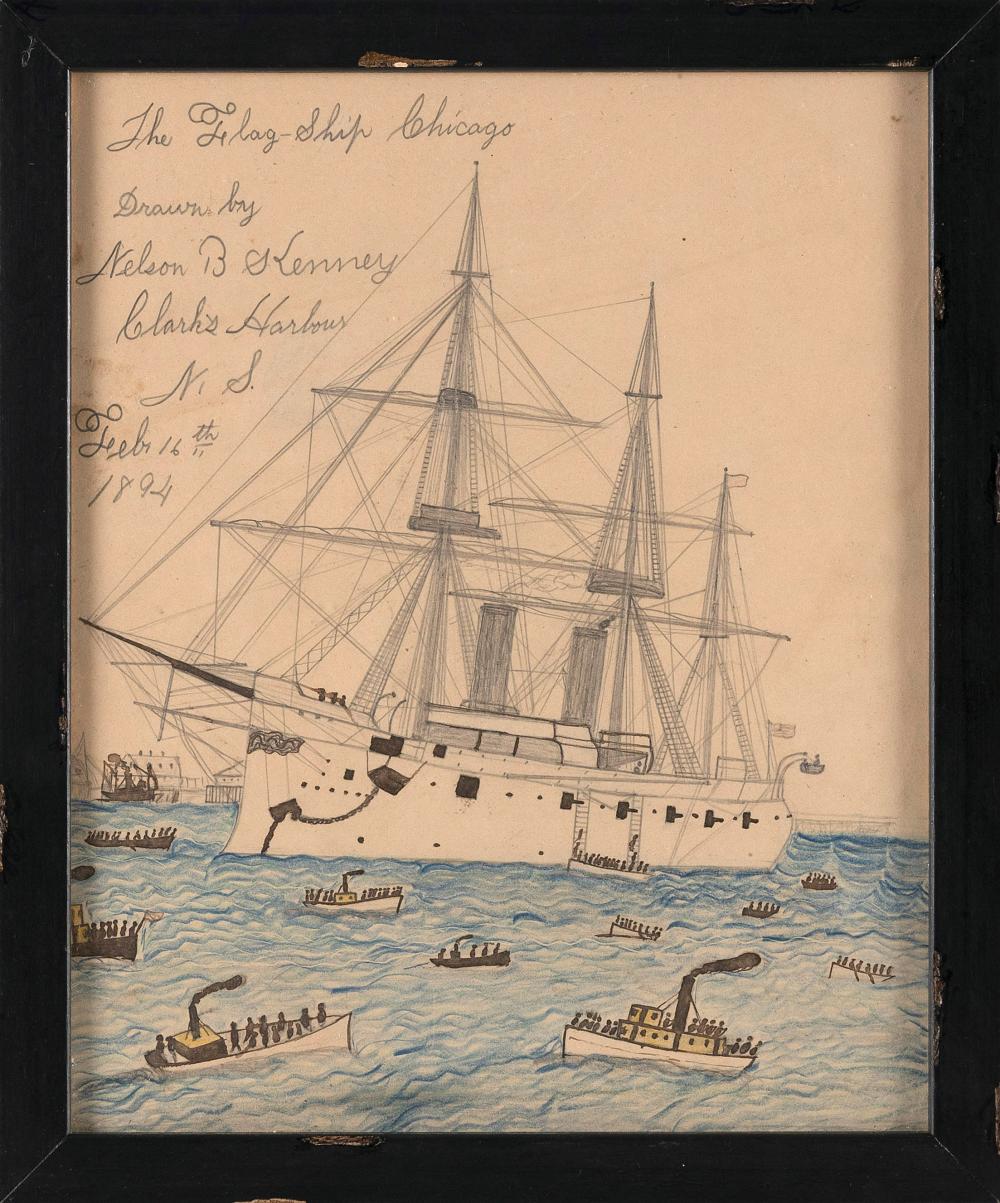 The Flag-Ship Chicago
Drawn by
Nelson B Kenney
Clark's Harbour
N. S.
Feb. 16th
1894